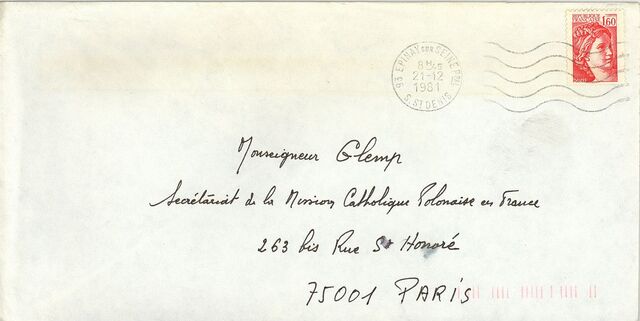 93 EPINAY SUR SEINE PPAL
8H45
21-12
1981
S. ST DENIS
1,60
Monseigneur Glemp
Secrétariat de la Mission Catholique Polonaise en France
263 bis Rue St Honoré
75001 PARIS